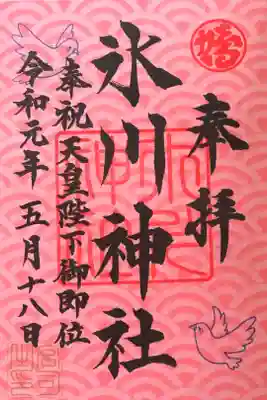 奉拝
氷川神社
奉祝天皇陛下御即位
令和元年五月十八日